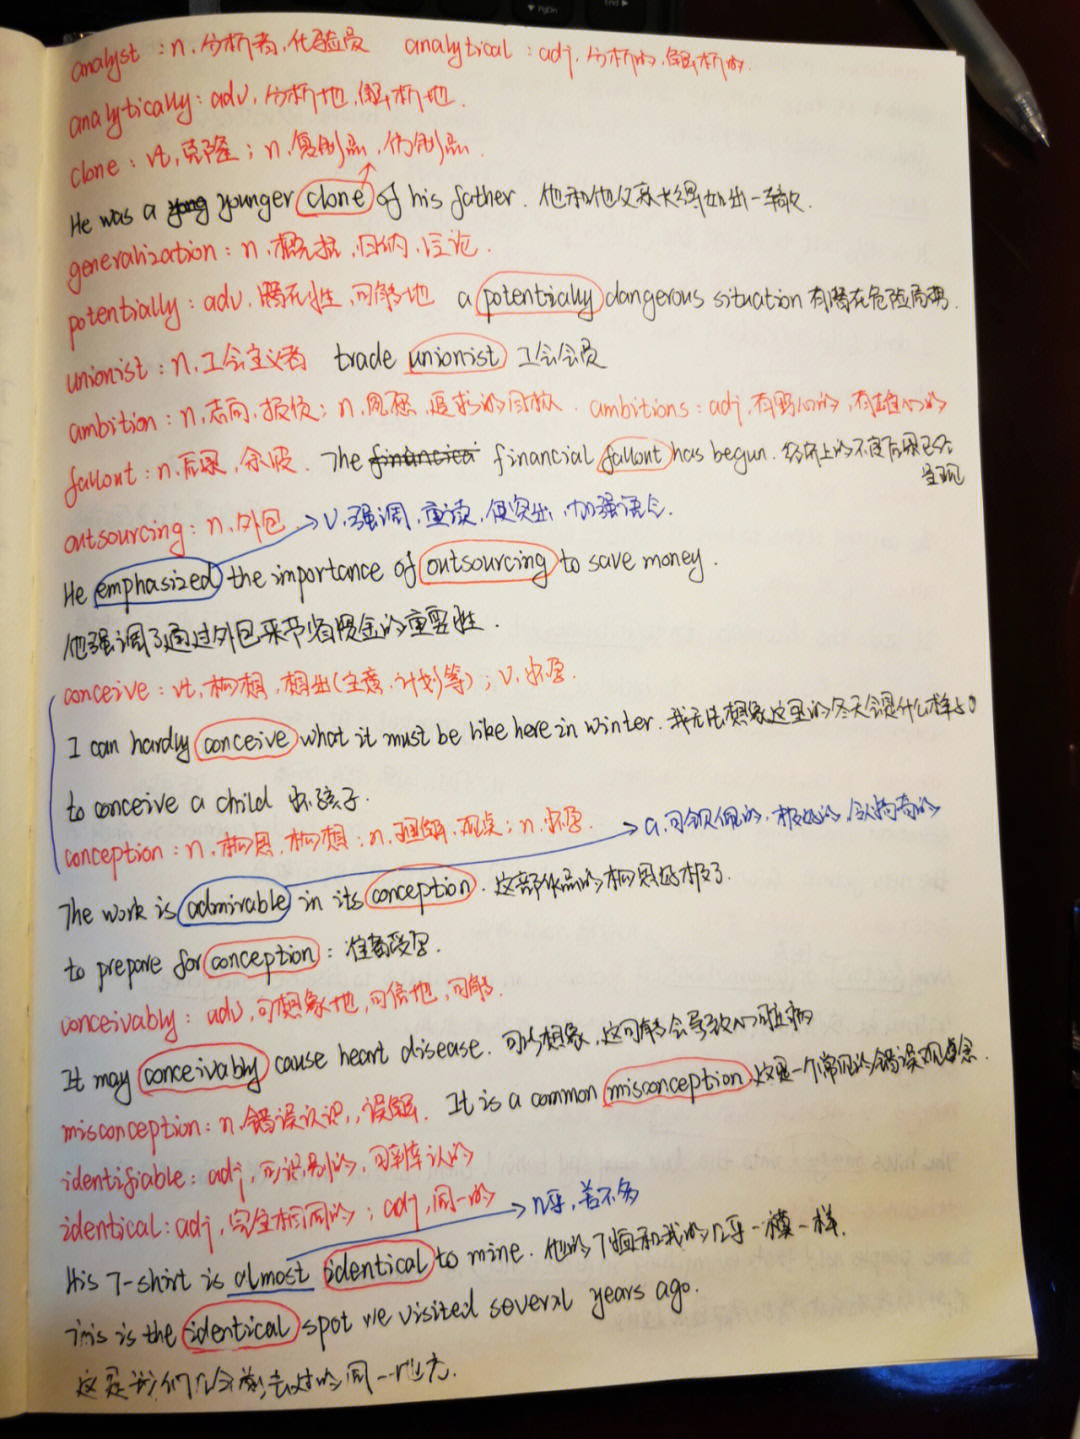 analyst : n, 分析者, 化验员 analytical : adj, 分析的, 解析的.
analytically : adv, 分析地, 解析地.
clone : vt, 克隆 ; n, 复制品, 仿制品.
He was a younger clone of his father . 他和他父亲长得如出一辙.
generalization : n, 概括, 归纳, 泛论.
potentially : adv, 潜在性, 可能地 a potentially dangerous situation 有潜在危险局势.
unionist : n, 工会主义者 trade unionist 工会会员
ambition : n, 志向, 抱负; n, 夙愿, 追求的目标. ambitions : adj, 有野心的, 有雄心的
fallout : n, 后果, 余波. The financial fallout has begun. 经济上的不良后果已经
呈现
outsourcing : n, 外包 → V, 强调, 重读, 使突出, 加强语气.
He emphasized the importance of outsourcing to save money.
他强调了通过外包来节省现金的重要性.
conceive : vt, 构想, 想出(主意, 计划等) ; V, 怀孕.
I can hardly conceive what it must be like here in winter. 我无法想象这里的冬天会是什么样子
to conceive a child 怀孩子.
conception : n, 构思, 构想 ; n, 理解, 观点 ; n, 怀孕. → a, 可钦佩的, 极好的, 令人惊奇的
The work is admirable in its conception. 这部作品的构思好极了.
to prepare for conception : 准备受孕.
conceivably : adv, 可想象地, 可信地, 可能.
It may conceivably cause heart disease. 可以想象, 这可能会导致心脏病
misconception : n, 错误认识, 误解. It is a common misconception 这是一个常见的错误观念.
identifiable : adj, 可识别的, 可辨认的
identical : adj, 完全相同的 ; adj, 同一的 → 几乎, 差不多
His T-shirt is almost identical to mine. 他的T恤和我的几乎一模一样.
This is the identical spot we visited several years ago.
这是我们几年前去过的同一地方.